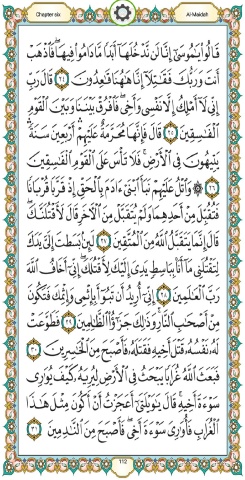 Chapter six
Al-Maidah
قَالُوا۟ يَـٰمُوسَىٰٓ إِنَّا لَن نَّدْخُلَهَآ أَبَدًا مَّا دَامُوا۟ فِيهَا ۖ فَٱذْهَبْ
أَنتَ وَرَبُّكَ فَقَـٰتِلَآ إِنَّا هَـٰهُنَا قَـٰعِدُونَ ٢٤ قَالَ رَبِّ
إِنِّى لَآ أَمْلِكُ إِلَّا نَفْسِى وَأَخِى ۖ فَٱفْرُقْ بَيْنَنَا وَبَيْنَ ٱلْقَوْمِ
ٱلْفَـٰسِقِينَ ٢٥ قَالَ فَإِنَّهَا مُحَرَّمَةٌ عَلَيْهِمْ ۛ أَرْبَعِينَ سَنَةً ۛ
يَتِيهُونَ فِى ٱلْأَرْضِ ۚ فَلَا تَأْسَ عَلَى ٱلْقَوْمِ ٱلْفَـٰسِقِينَ
٢٦ ۞ وَٱتْلُ عَلَيْهِمْ نَبَأَ ٱبْنَىْ ءَادَمَ بِٱلْحَقِّ إِذْ قَرَّبَا قُرْبَانًا
فَتُقُبِّلَ مِنْ أَحَدِهِمَا وَلَمْ يُتَقَبَّلْ مِنَ ٱلْـَٔاخَرِ قَالَ لَأَقْتُلَنَّكَ ۖ
قَالَ إِنَّمَا يَتَقَبَّلُ ٱللَّهُ مِنَ ٱلْمُتَّقِينَ ٢٧ لَئِنۢ بَسَطتَ إِلَىَّ يَدَكَ
لِتَقْتُلَنِى مَآ أَنَا۠ بِبَاسِطٍ يَدِىَ إِلَيْكَ لِأَقْتُلَكَ ۖ إِنِّىٓ أَخَافُ ٱللَّهَ
رَبَّ ٱلْعَـٰلَمِينَ ٢٨ إِنِّىٓ أُرِيدُ أَن تَبُوٓأَ بِإِثْمِى وَإِثْمِكَ فَتَكُونَ
مِنْ أَصْحَـٰبِ ٱلنَّارِ ۚ وَذَٰلِكَ جَزَٰٓؤُا۟ ٱلظَّـٰلِمِينَ ٢٩ فَطَوَّعَتْ
لَهُۥ نَفْسُهُۥ قَتْلَ أَخِيهِ فَقَتَلَهُۥ فَأَصْبَحَ مِنَ ٱلْخَـٰسِرِينَ ٣٠
فَبَعَثَ ٱللَّهُ غُرَابًا يَبْحَثُ فِى ٱلْأَرْضِ لِيُرِيَهُۥ كَيْفَ يُوَٰرِى
سَوْءَةَ أَخِيهِ ۚ قَالَ يَـٰوَيْلَتَىٰٓ أَعَجَزْتُ أَنْ أَكُونَ مِثْلَ هَـٰذَا
ٱلْغُرَابِ فَأُوَٰرِىَ سَوْءَةَ أَخِى ۖ فَأَصْبَحَ مِنَ ٱلنَّـٰدِمِينَ ٣١
112